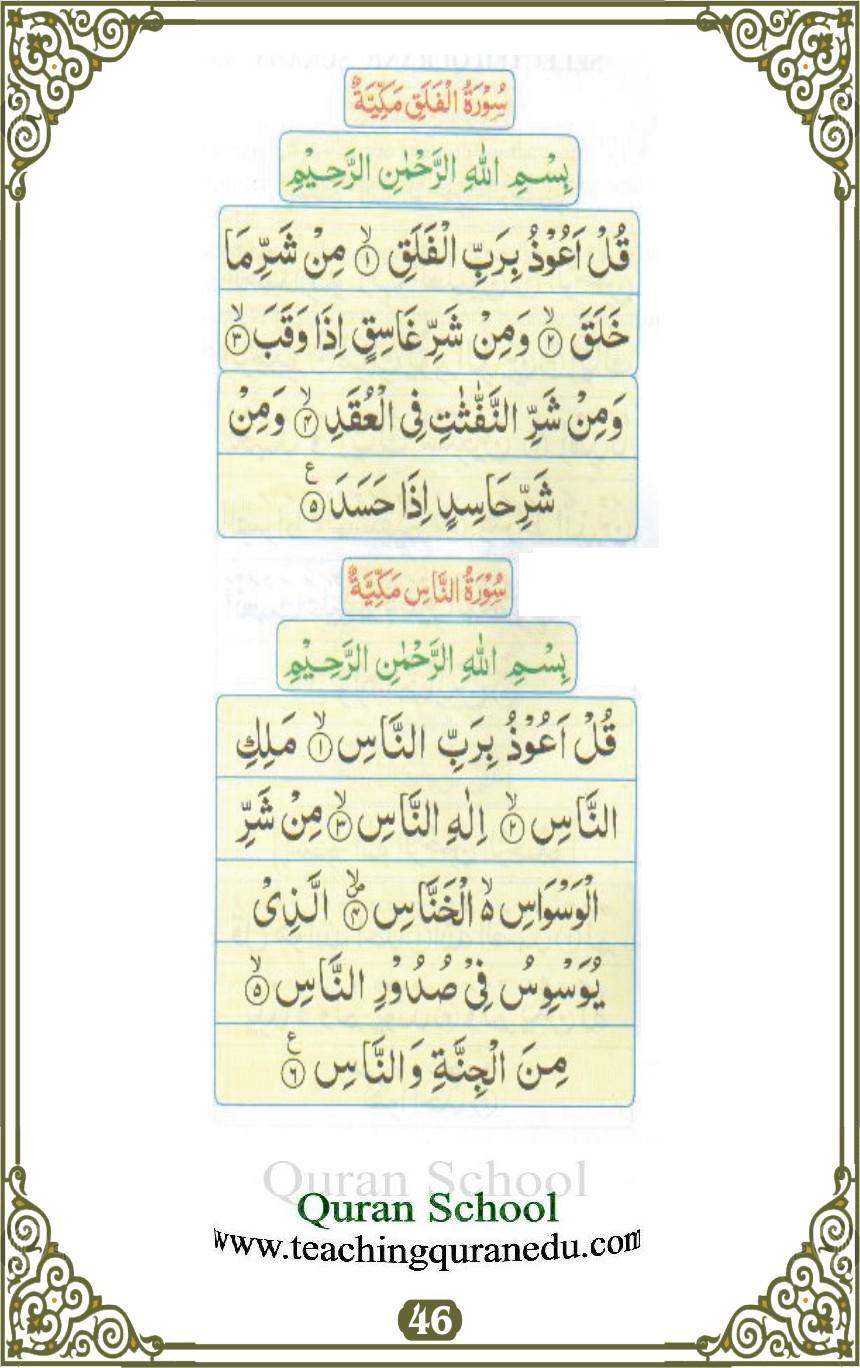 سُوْرَةُ الْفَلَقِ مَكِّيَّةٌ
بِسْمِ اللّٰهِ الرَّحْمٰنِ الرَّحِيْمِ
قُلْ اَعُوْذُ بِرَبِّ الْفَلَقِ ۙ﴿۱﴾ مِنْ شَرِّ مَا
خَلَقَ ۙ﴿۲﴾ وَمِنْ شَرِّ غَاسِقٍ اِذَا وَقَبَ ۙ﴿۳﴾
وَمِنْ شَرِّ النَّفّٰثٰتِ فِى الْعُقَدِ ۙ﴿۴﴾ وَمِنْ
شَرِّ حَاسِدٍ اِذَا حَسَدَ ﴿۵﴾ ع
سُوْرَةُ النَّاسِ مَكِّيَّةٌ
بِسْمِ اللّٰهِ الرَّحْمٰنِ الرَّحِيْمِ
قُلْ اَعُوْذُ بِرَبِّ النَّاسِ ۙ﴿۱﴾ مَلِكِ
النَّاسِ ۙ﴿۲﴾ اِلٰهِ النَّاسِ ۙ﴿۳﴾ مِنْ شَرِّ
الْوَسْوَاسِ ۙ۵ الْخَنَّاسِ ۙ﴿۴﴾ ص الَّذِىْ
يُوَسْوِسُ فِىْ صُدُوْرِ النَّاسِ ۙ﴿۵﴾
مِنَ الْجِنَّةِ وَالنَّاسِ ﴿۶﴾ ع
Quran School
Quran School
www.teachingquranedu.com
46